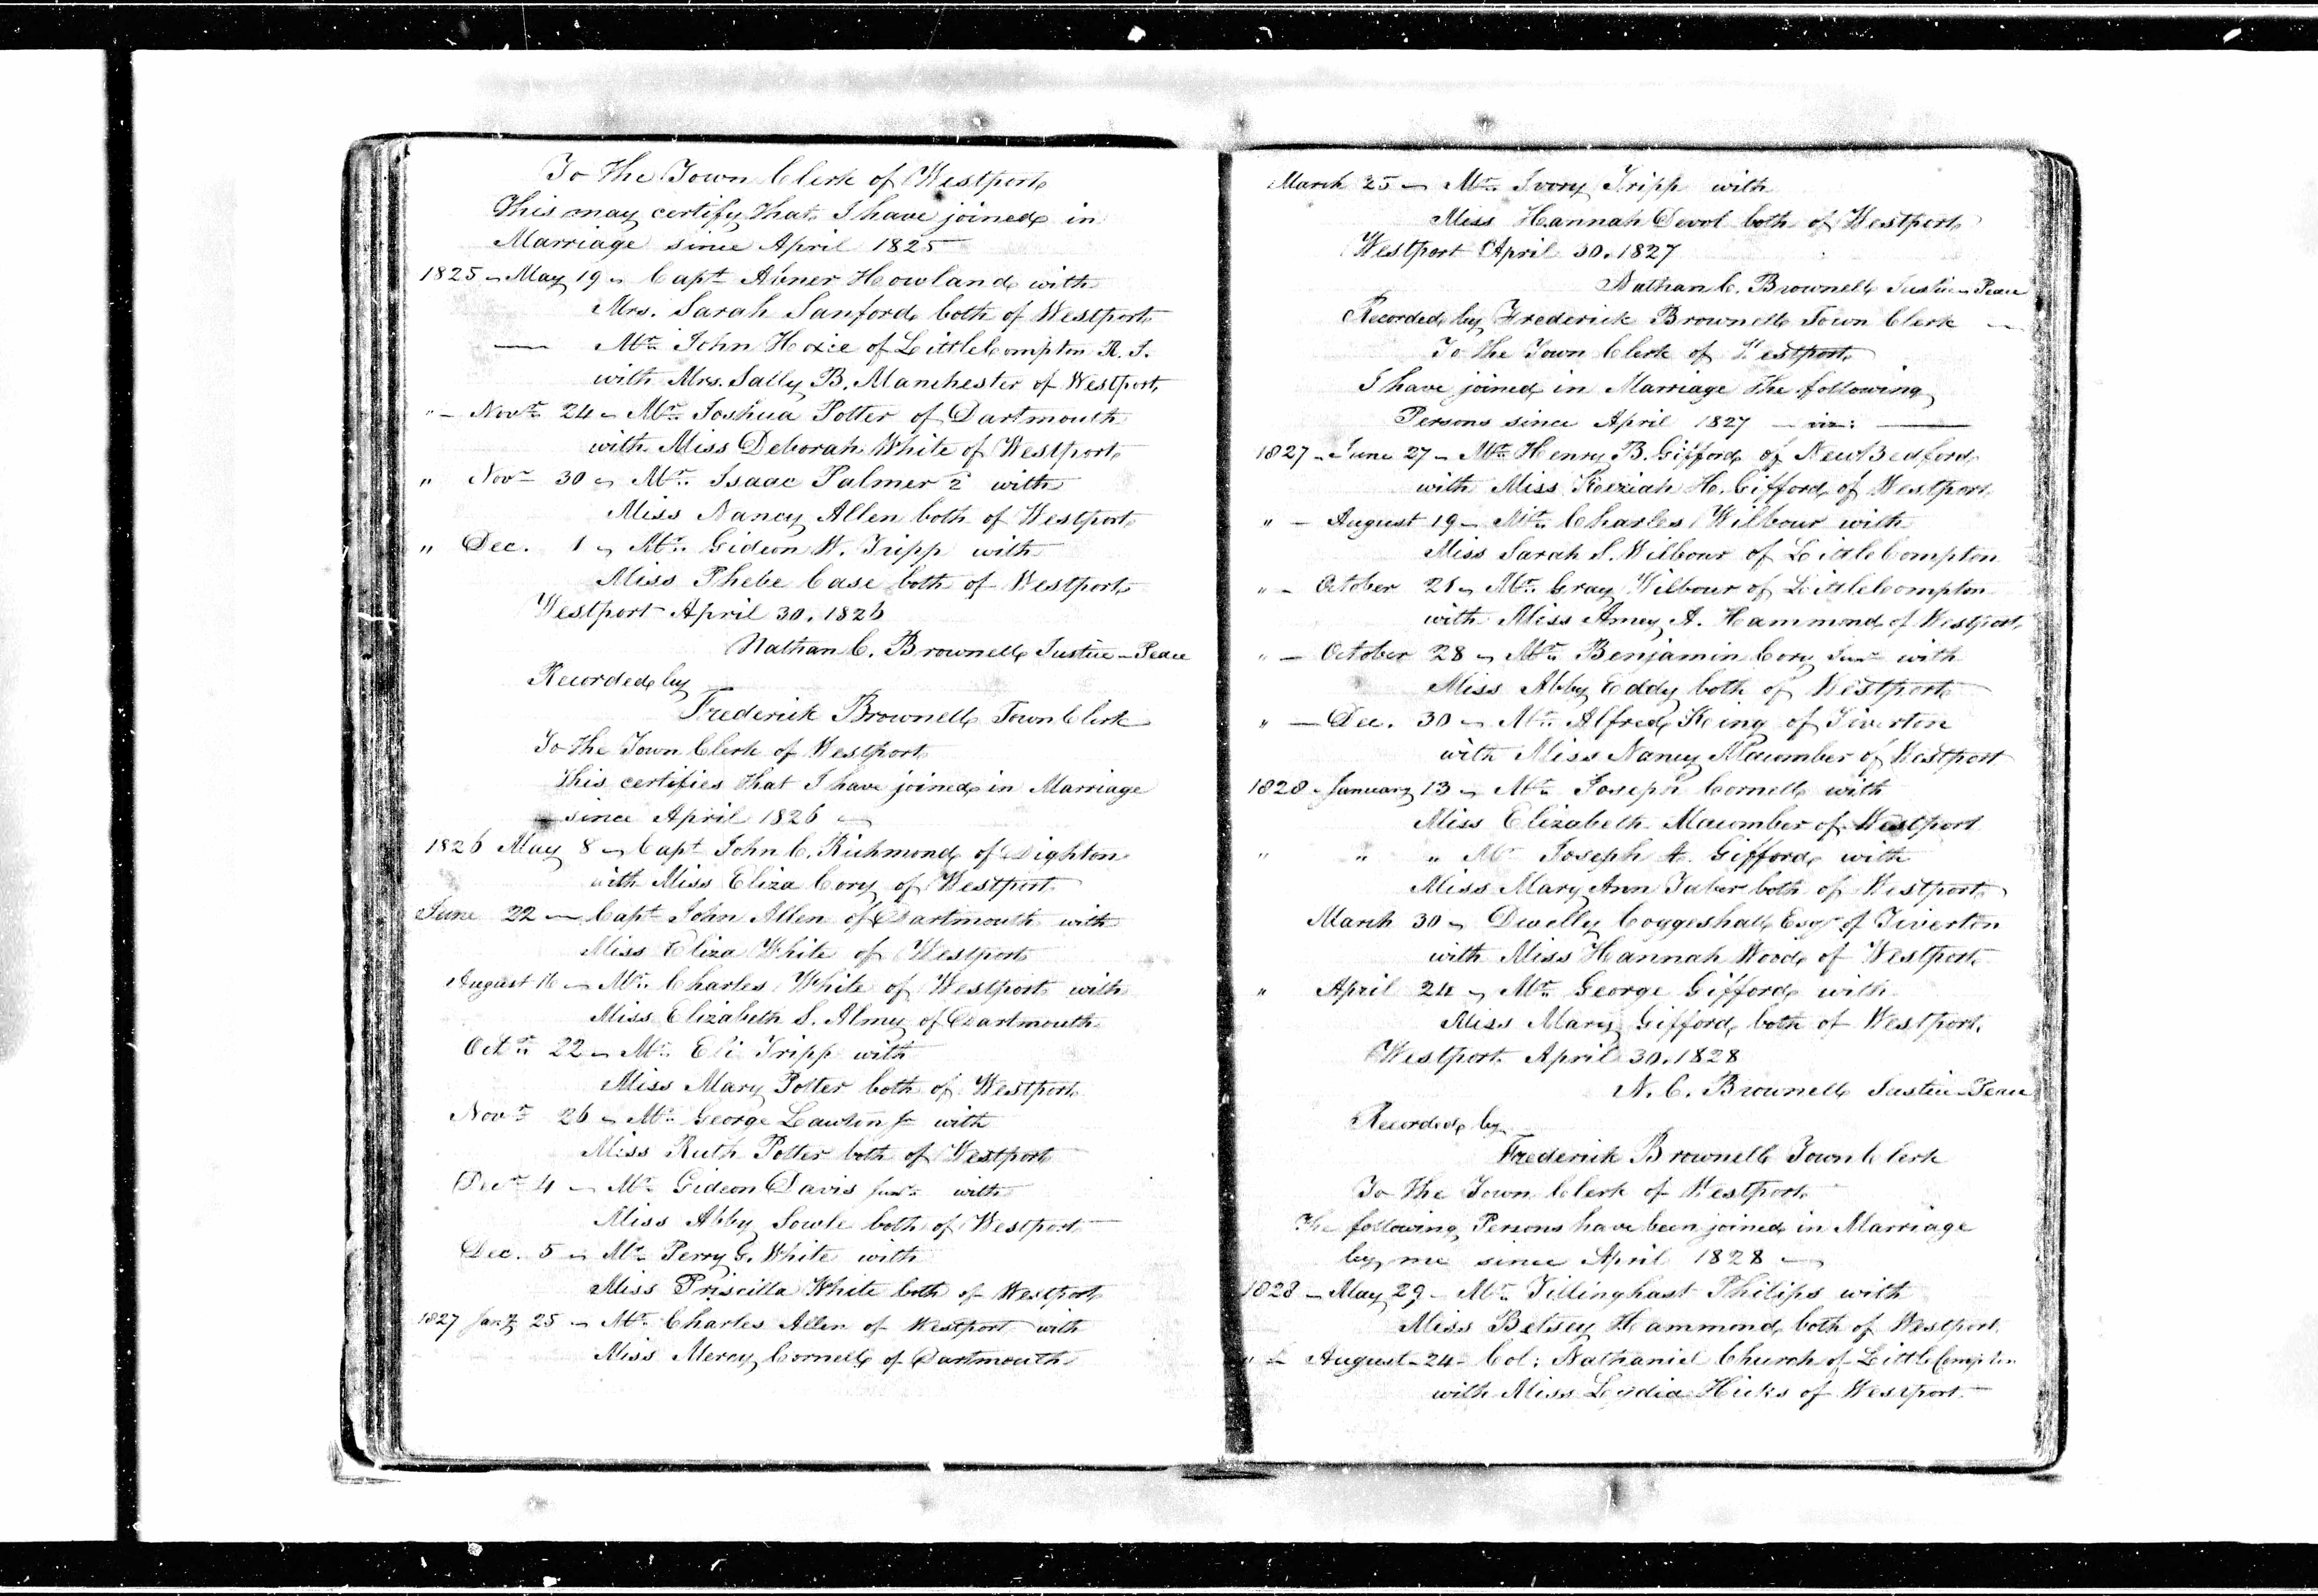 To the Town Clerk of Westport
This may certify that I have joined in
Marriage since April 1825
1825 - May 19 - Capt Abner Howland with
Mrs. Sarah Sanford both of Westport
— Mr. John Hoxie of Little Compton R. I.
with Mrs. Sally B. Manchester of Westport
" - Novr. 24 - Mr. Joshua Potter of Dartmouth
with Miss Deborah White of Westport
" Novr 30 - Mr. Isaac Palmer 2 with
Miss Nancy Allen both of Westport
" Dec. 1 - Mr. Gideon W. Tripp with
Miss Phebe Case both of Westport
Westport April 30. 1826
Nathan C. Brownell Justice - Peace
Recorded by
Frederick Brownell Town Clerk
To the Town Clerk of Westport
This certifies that I have joined in Marriage
since April 1826 -
1826 May 8 - Capt John C. Richmond of Dighton
with Miss Eliza Cory of Westport
June 22 - Capt John Allen of Dartmouth with
Miss Eliza White of Westport
August 16 - Mr. Charles White of Westport with
Miss Elizabeth S. Almy of Dartmouth
Octr. 22 - Mr. Eli Tripp with
Miss Mary Potter both of Westport
Novr 26 - Mr. George Lawton Jr with
Miss Ruth Potter both of Westport
Decr 4 - Mr. Gideon Davis Junr. with
Miss Abby Sowle both of Westport
Dec. 5 - Mr. Perry G. White with
Miss Priscilla White both of Westport
1827 Jany 25 - Mr. Charles Allen of Westport with
Miss Mercy Cornell of Dartmouth
March 25 - Mr. Ivory Tripp with
Miss Hannah Devol both of Westport
Westport April 30. 1827
Nathan C. Brownell Justice - Peace
Recorded by Frederick Brownell Town Clerk -
To the Town Clerk of Westport
I have joined in Marriage the following
Persons since April 1827 - viz: —
1827 - June 27 - Mr. Henry B. Gifford of New Bedford
with Miss Keziah H. Gifford of Westport
" - August 19 - Mr. Charles Wilbour with
Miss Sarah S. Wilbour of Little Compton
" - October 21 - Mr. Gray Wilbour of Little Compton
with Miss Amey A. Hammond of Westport
" - October 28 - Mr. Benjamin Cory Junr with
Miss Abby Eddy both of Westport
" - Dec. 30 - Mr. Alfred King of Tiverton
with Miss Nancy Macomber of Westport
1828 - January 13 - Mr. Joseph Cornell with
Miss Elizabeth Macomber of Westport
" " " Mr Joseph A. Gifford with
Miss Mary Ann Taber both of Westport
March 30 - Dwelly Coggeshall Esqr of Tiverton
with Miss Hannah Wood of Westport
" April 24 - Mr. George Gifford with
Miss Mary Gifford both of Westport
Westport April 30. 1828
N. C. Brownell Justice - Peace
Recorded by
Frederick Brownell Town Clerk
To the Town Clerk of Westport
The following Persons have been joined in Marriage
by me since April 1828 -
1828 - May 29 - Mr. Tillinghast Philips with
Miss Betsey Hammond both of Westport
" - August - 24 - Col: Nathaniel Church of Little Compton
with Miss Lydia Hicks of Westport -